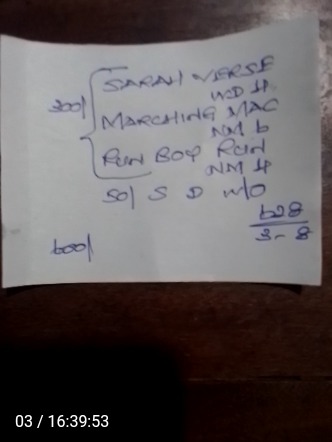 SARAH VERSE
WD 4
300/
MARCHING MAC
NM 6
RUN BOY RUN
NM 4
50/ S D W/O
628
3-8
600/
03 / 16:39:53